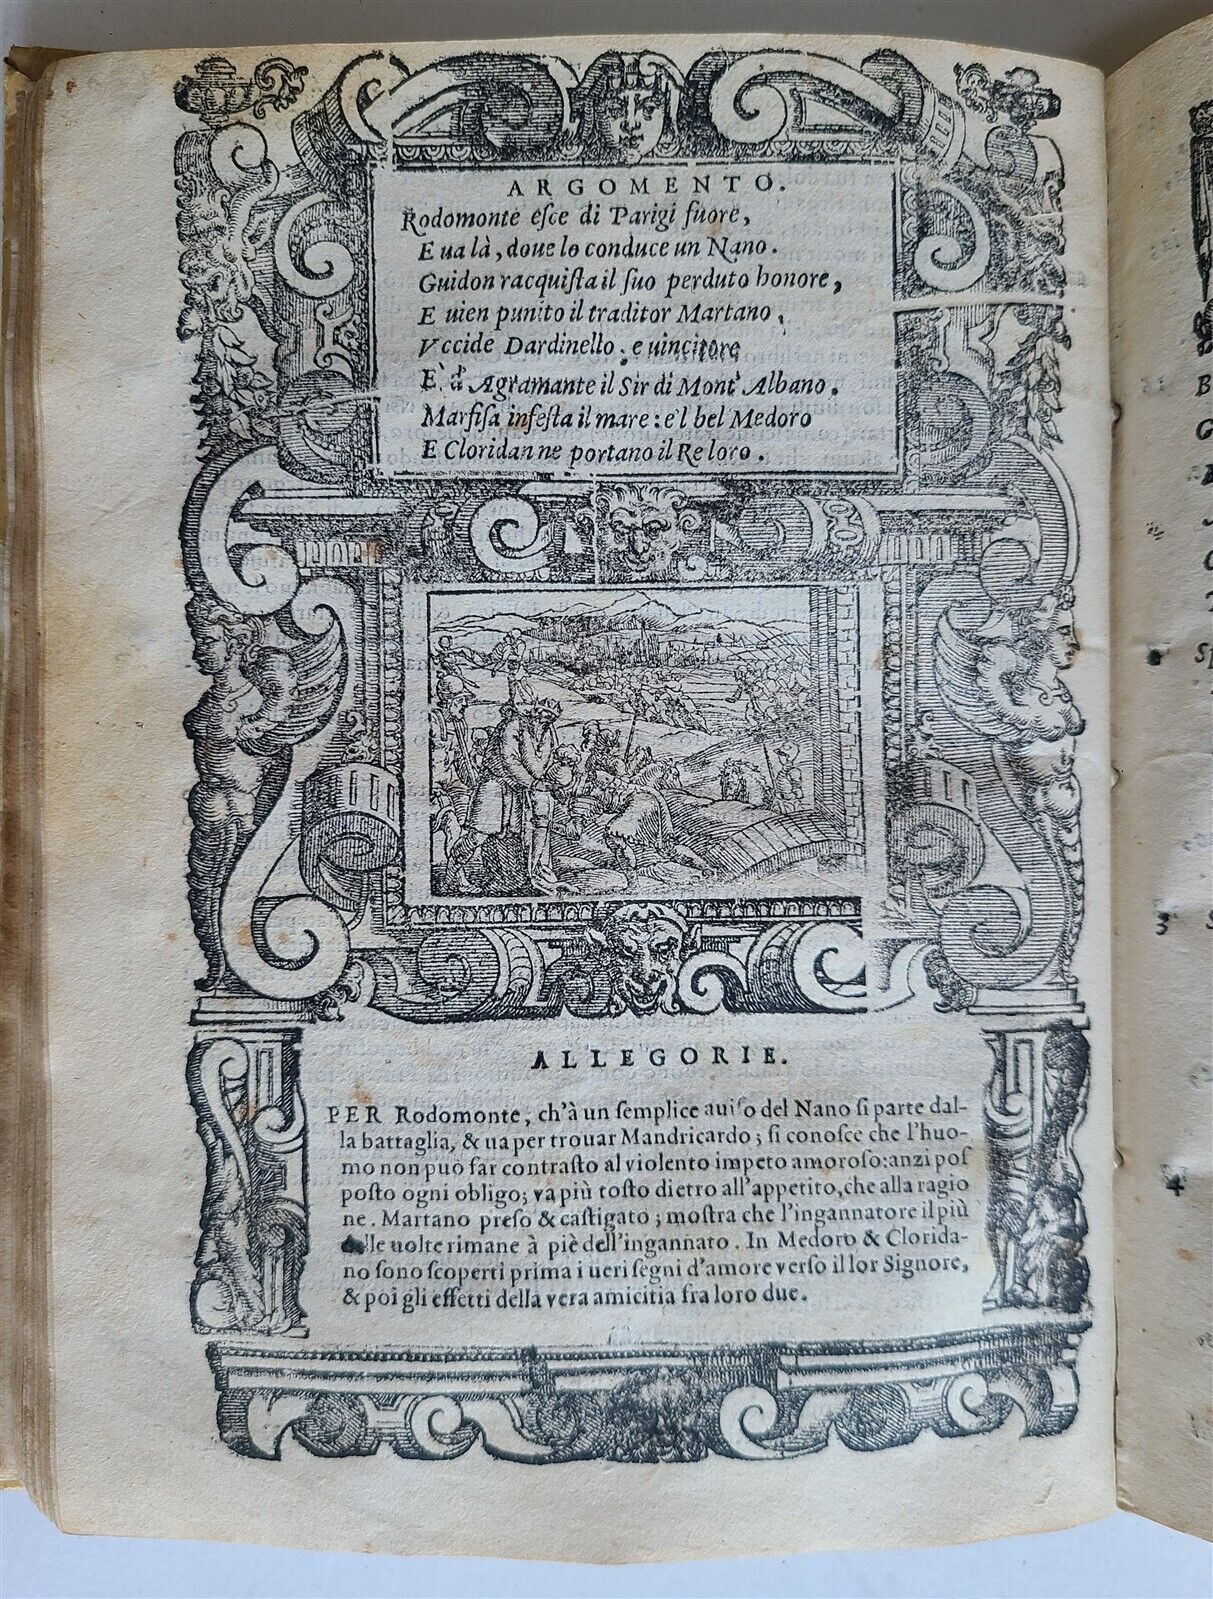 ARGOMENTO.
Rodomonte eſce di Parigi fuore,
E ua là, doue lo conduce un Nano.
Guidon racquiſta il ſuo perduto honore,
E uien punito il traditor Martano,
Vccide Dardinello, e uincitore
E' d' Agramante il Sir di Mont' Albano.
Marfiſa infeſta il mare: e'l bel Medoro
E Cloridan ne portano il Re loro.
ALLEGORIE.
PER Rodomonte, ch'à un ſemplice auiſo del Nano ſi parte dal-
la battaglia, & ua per trouar Mandricardo; ſi conoſce che l'huo-
mo non può far contraſto al violento impeto amoroſo: anzi poſ
poſto ogni obligo; va più toſto dietro all'appetito, che alla ragio
ne. Martano preſo & caſtigato; moſtra che l'ingannatore il più
delle uolte rimane à piè dell'ingannato. In Medoro & Clorida-
no ſono ſcoperti prima i ueri ſegni d'amore verſo il lor Signore,
& poi gli effetti della vera amicitia fra loro due.
B
G
C
3 S
4